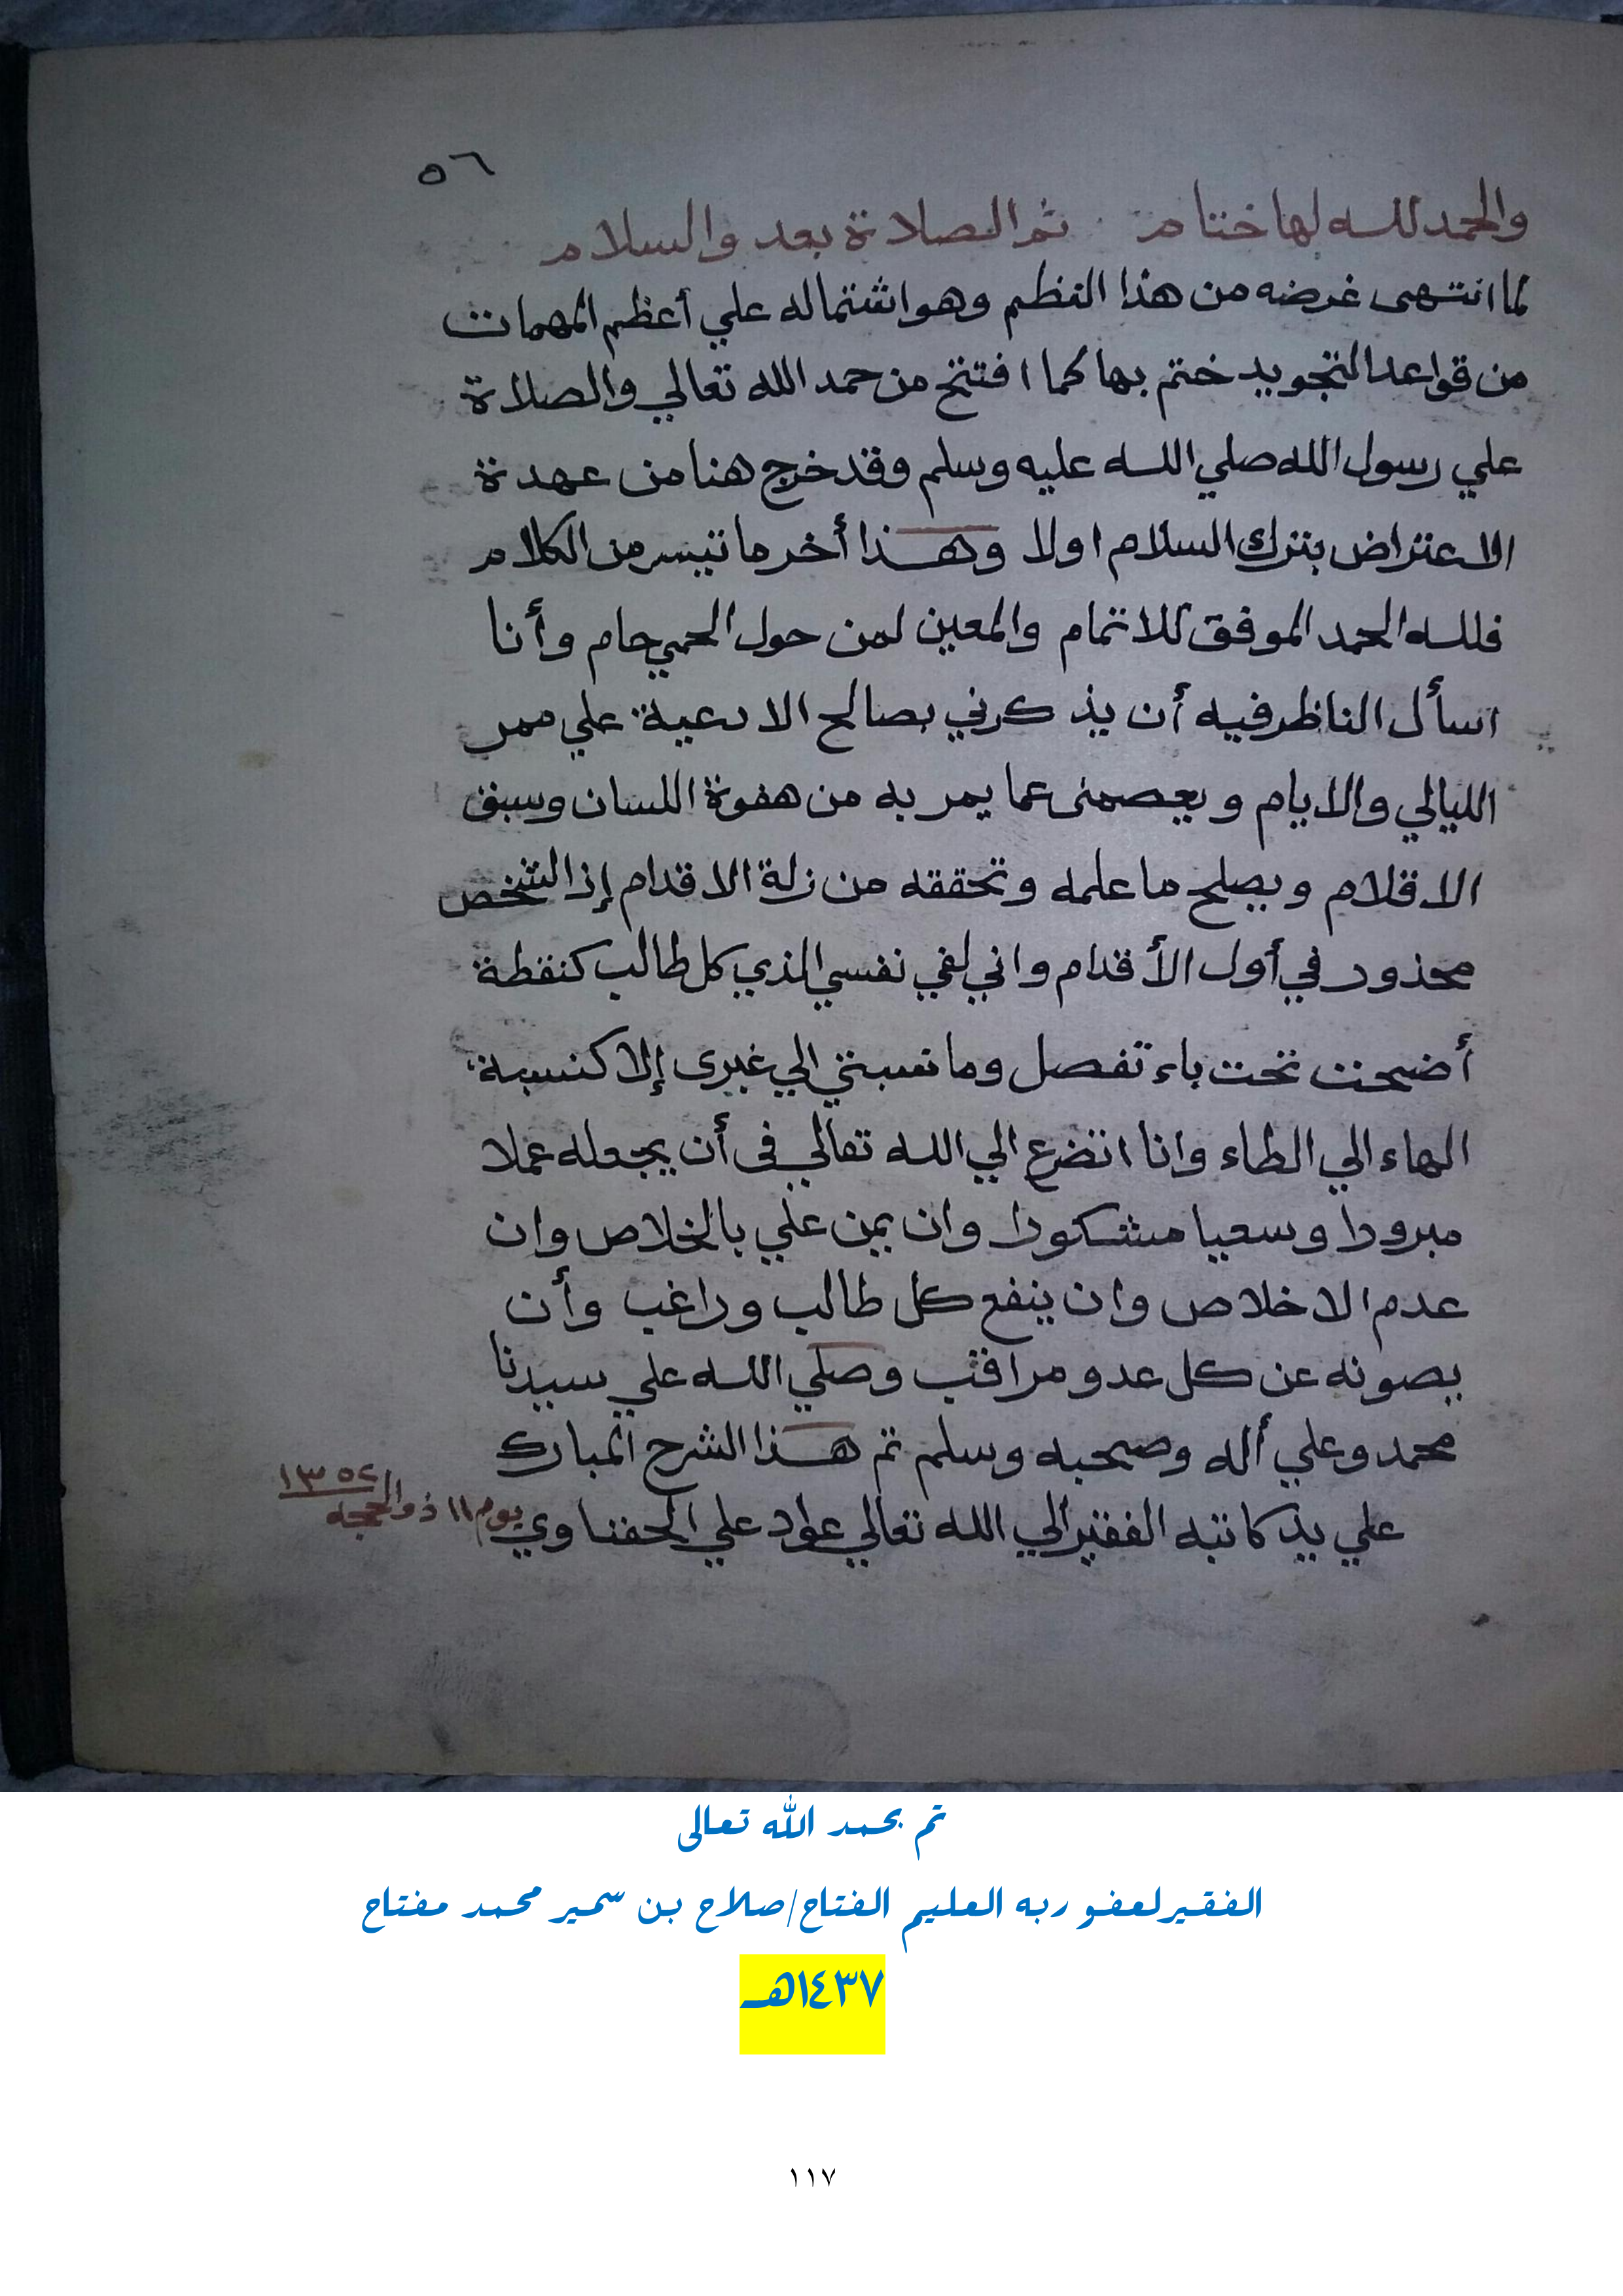 ٥٦
والحمد لله لها ختام ثم الصلاة بعد والسلام
لما انتهى غرضه من هذا النظم وهو اشتماله علي أعظم المهمات
من قواعد التجويد ختم بها كما افتتح من حمد الله تعالي والصلاة
علي رسول الله صلي الله عليه وسلم وقد خرج هنا من عهدة
الاعتراض بترك السلام اولا وهذا أخر ما تيسر من الكلام
فلله الحمد الموفق للاتمام والمعين لمن حول الحمي حام وأنا
اسأل الناظر فيه أن يذكرني بصالح الادعية علي ممر
الليالي والايام ويعصمنى عما يمر به من هفوة اللسان وسبق
الاقلام ويصلح ما علمه وتحققه من زلة الاقدام إذ الشخص
محذور في أول الأقدام واني لفي نفسي الذي كل طالب كنقطة
أضحت تحت باء تفصل وما نسبتي الي غيرى إلا كنسبة
الهاء الي الطاء وانا اتضرع الي الله تعالي فى أن يجعله عملا
مبرورا وسعيا مشكورا وان يمن علي بالخلاص وان
عدم الاخلاص وان ينفع كل طالب وراغب وأن
يصونه عن كل عدو مراقب وصلي الله علي سيدنا
محمد وعلي أله وصحبه وسلم تم هذا الشرح المبارك
علي يد كاتبه الفقير الي الله تعالي عواد علي الحفناوي
يوم ١١ ذو الحجه ١٣٥٢
تم بحمد الله تعالى
الفقير لعفو ربه العليم الفتاح/صلاح بن سمير محمد مفتاح
١٤٣٧هـ
١١٧